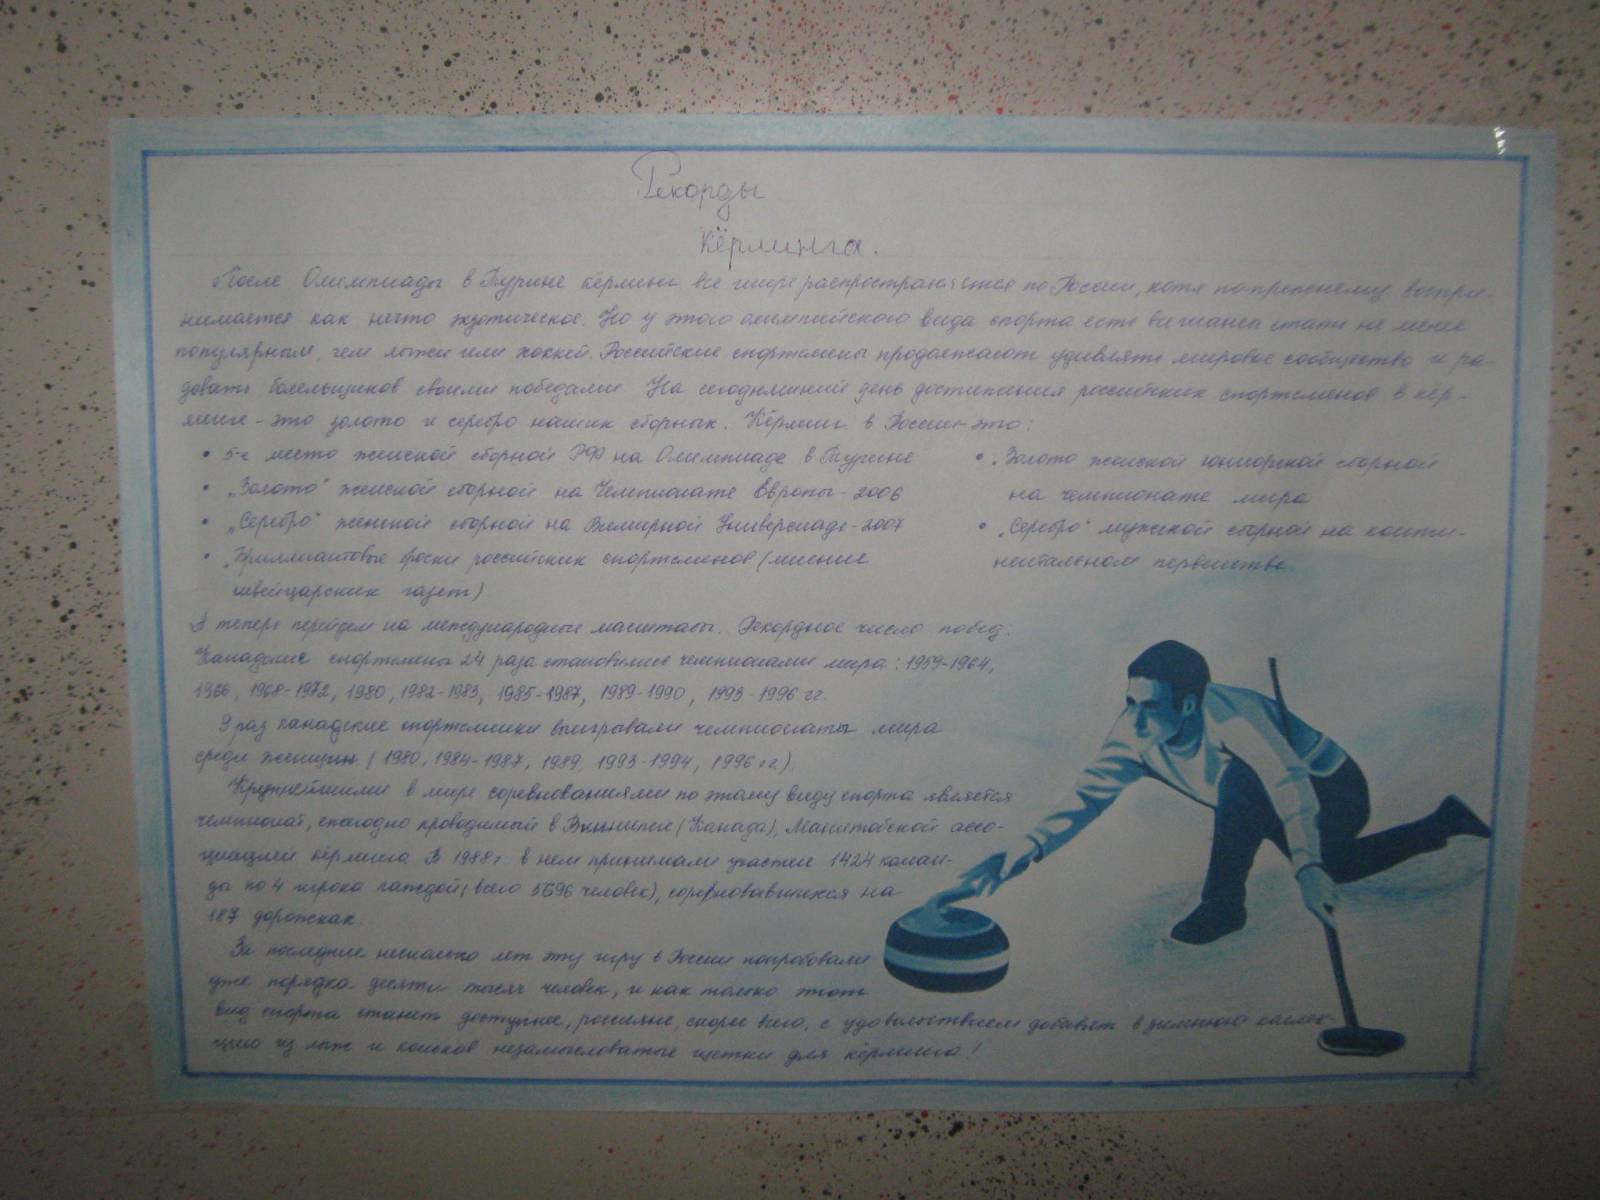 Рекорды
Кёрлинга.
После Олимпиады в Турине кёрлинг все шире распространяется по России, хотя по прежнему воспри-
нимается как нечто экзотическое. Но у этого олимпийского вида спорта есть все шансы стать не менее
популярным, чем лыжи или хоккей. Российские спортсмены продолжают удивлять мировое сообщество и ра-
довать болельщиков своими победами. На сегодняшний день достижения российских спортсменов в кёр-
линге - это золото и серебро наших сборных. Кёрлинг в России - это:
• 5-е место женской сборной РФ на Олимпиаде в Турине
• „Золото" женской сборной на Чемпионате Европы - 2006
• „Серебро" женской сборной на Всемирной Универсиаде - 2007
• „Бриллиантовые броски российских спортсменов (мнение
швейцарских газет)
• „Золото женской юниорской сборной
на чемпионате мира
• „Серебро" мужской сборной на конти-
нентальном первенстве
А теперь перейдем на международные масштабы. Рекордное число побед:
Канадские спортсмены 24 раза становились чемпионами мира: 1959-1964,
1966, 1968-1972, 1980, 1982-1983, 1985-1987, 1989-1990, 1993-1996 гг.
9 раз канадские спортсменки выигрывали чемпионаты мира
среди женщин (1980, 1984-1987, 1989, 1993-1994, 1996 гг.).
Крупнейшими в мире соревнованиями по этому виду спорта является
чемпионат, ежегодно проводимый в Виннипеге (Канада), Манитобской ассо-
циацией кёрлинга В 1988 г. в нем принимали участие 1424 коман-
ды по 4 игрока каждой (всего 5696 человек), соревновавшихся на
187 дорожках.
За последние несколько лет эту игру в России попробовали
уже порядка десяти тысяч человек, и как только этот
вид спорта станет доступнее, россияне, скорее всего, с удовольствием добавят в зимнюю коллек-
цию из лыж и коньков незамысловатые щетки для кёрлинга!